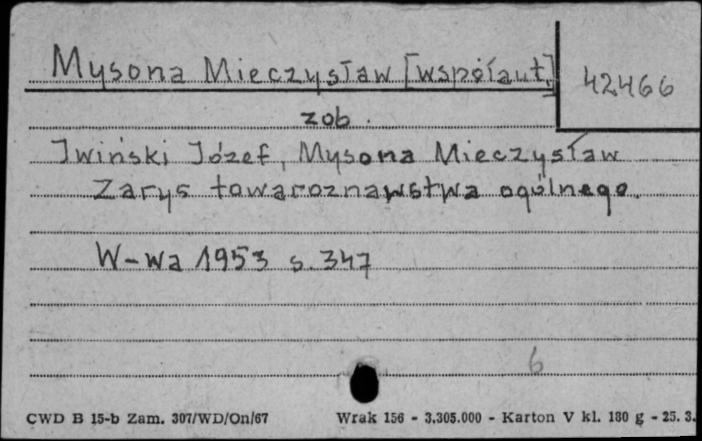 Mysona Mieczysław [współaut.]
42466
zob.
Iwiński Józef, Mysona Mieczysław
Zarys towaroznawstwa ogólnego.
W-wa 1953 s. 347
6
CWD B 15-b Zam. 307/WD/On/67 Wrak 156 - 3.305.000 - Karton V kl. 180 g - 25. 3.